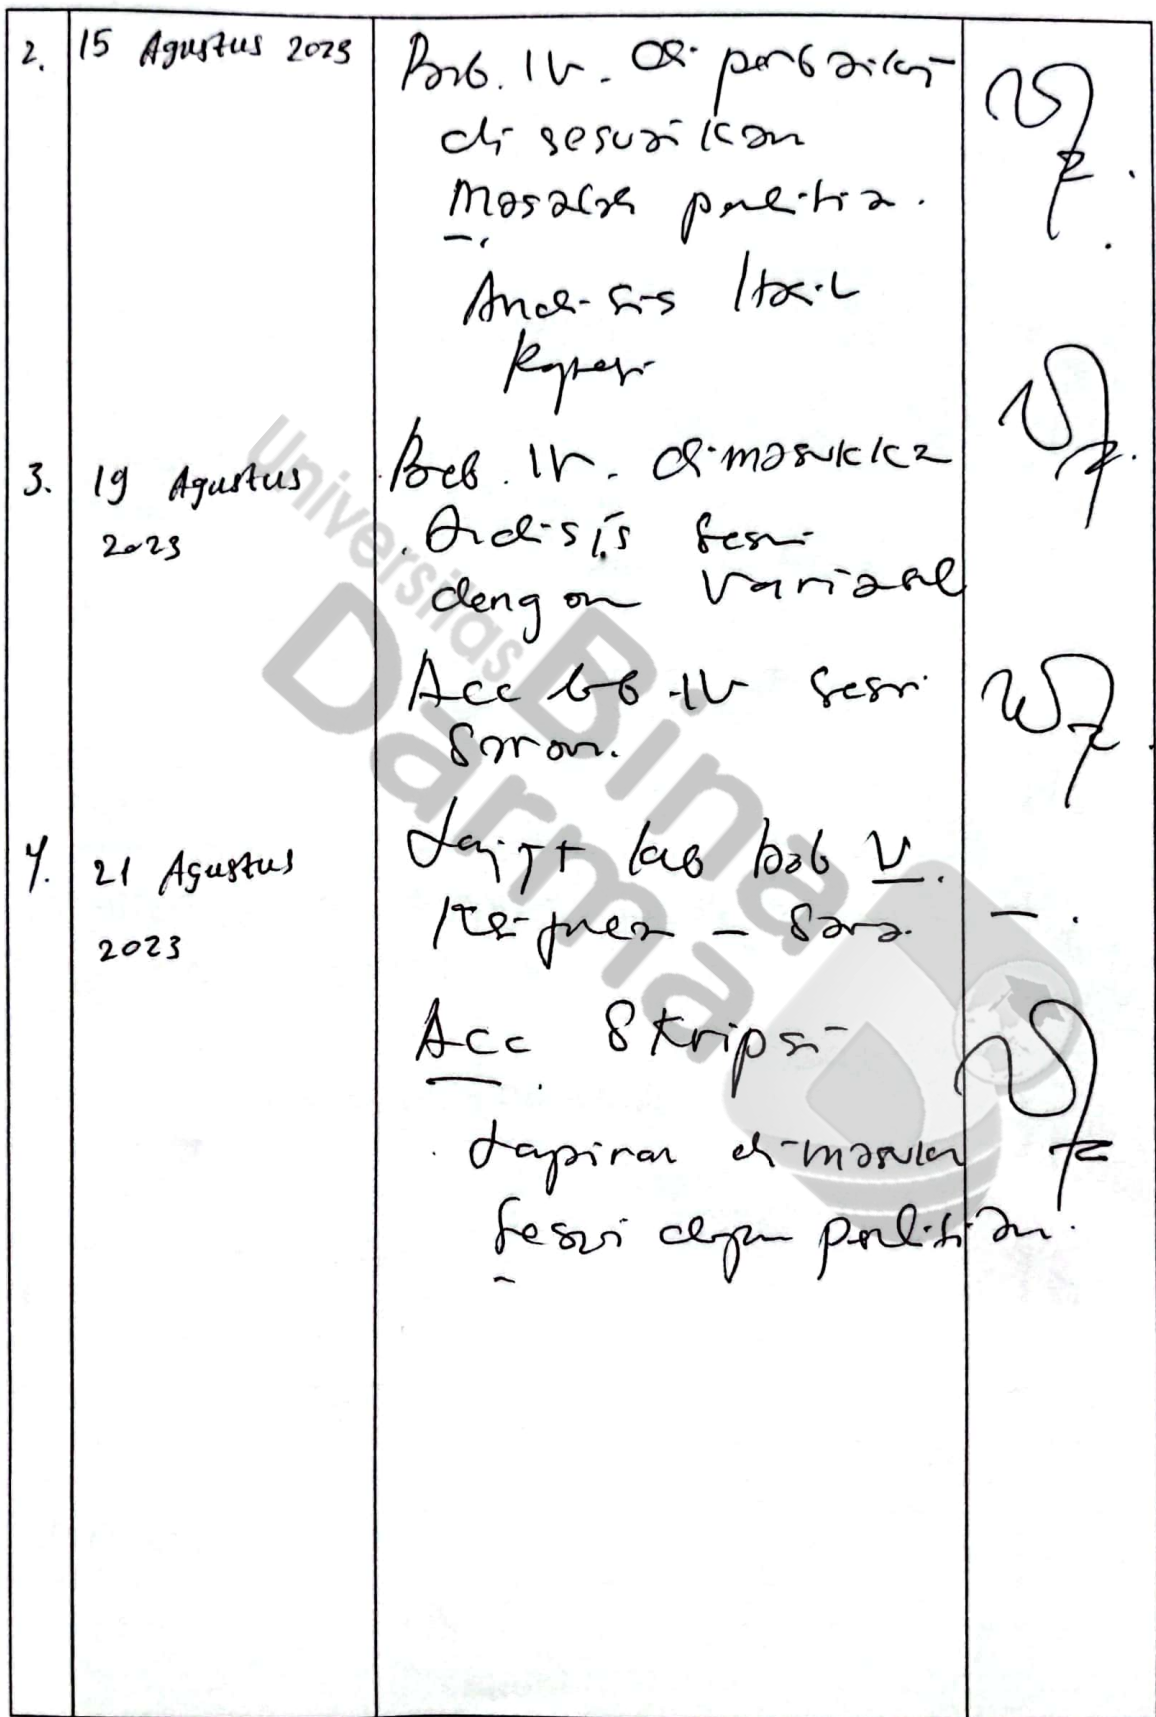 2. 15 Agustus 2023
Bab. IV. di perbaiki
di sesuaikan
Masalah penelitian.
Analisis Hasil
Regresi
3. 19 Agustus
2023
Bab. IV. dimasukkan
Analisis sesuai
dengan Variabel
Acc bab IV sesuai
Saran.
4. 21 Agustus
2023
Lanjut ke bab V.
Kesimpulan - Saran.
Acc Skripsi
Lampiran dimasukan
sesuai dengan penelitian.
Universitas
Bina
Darma